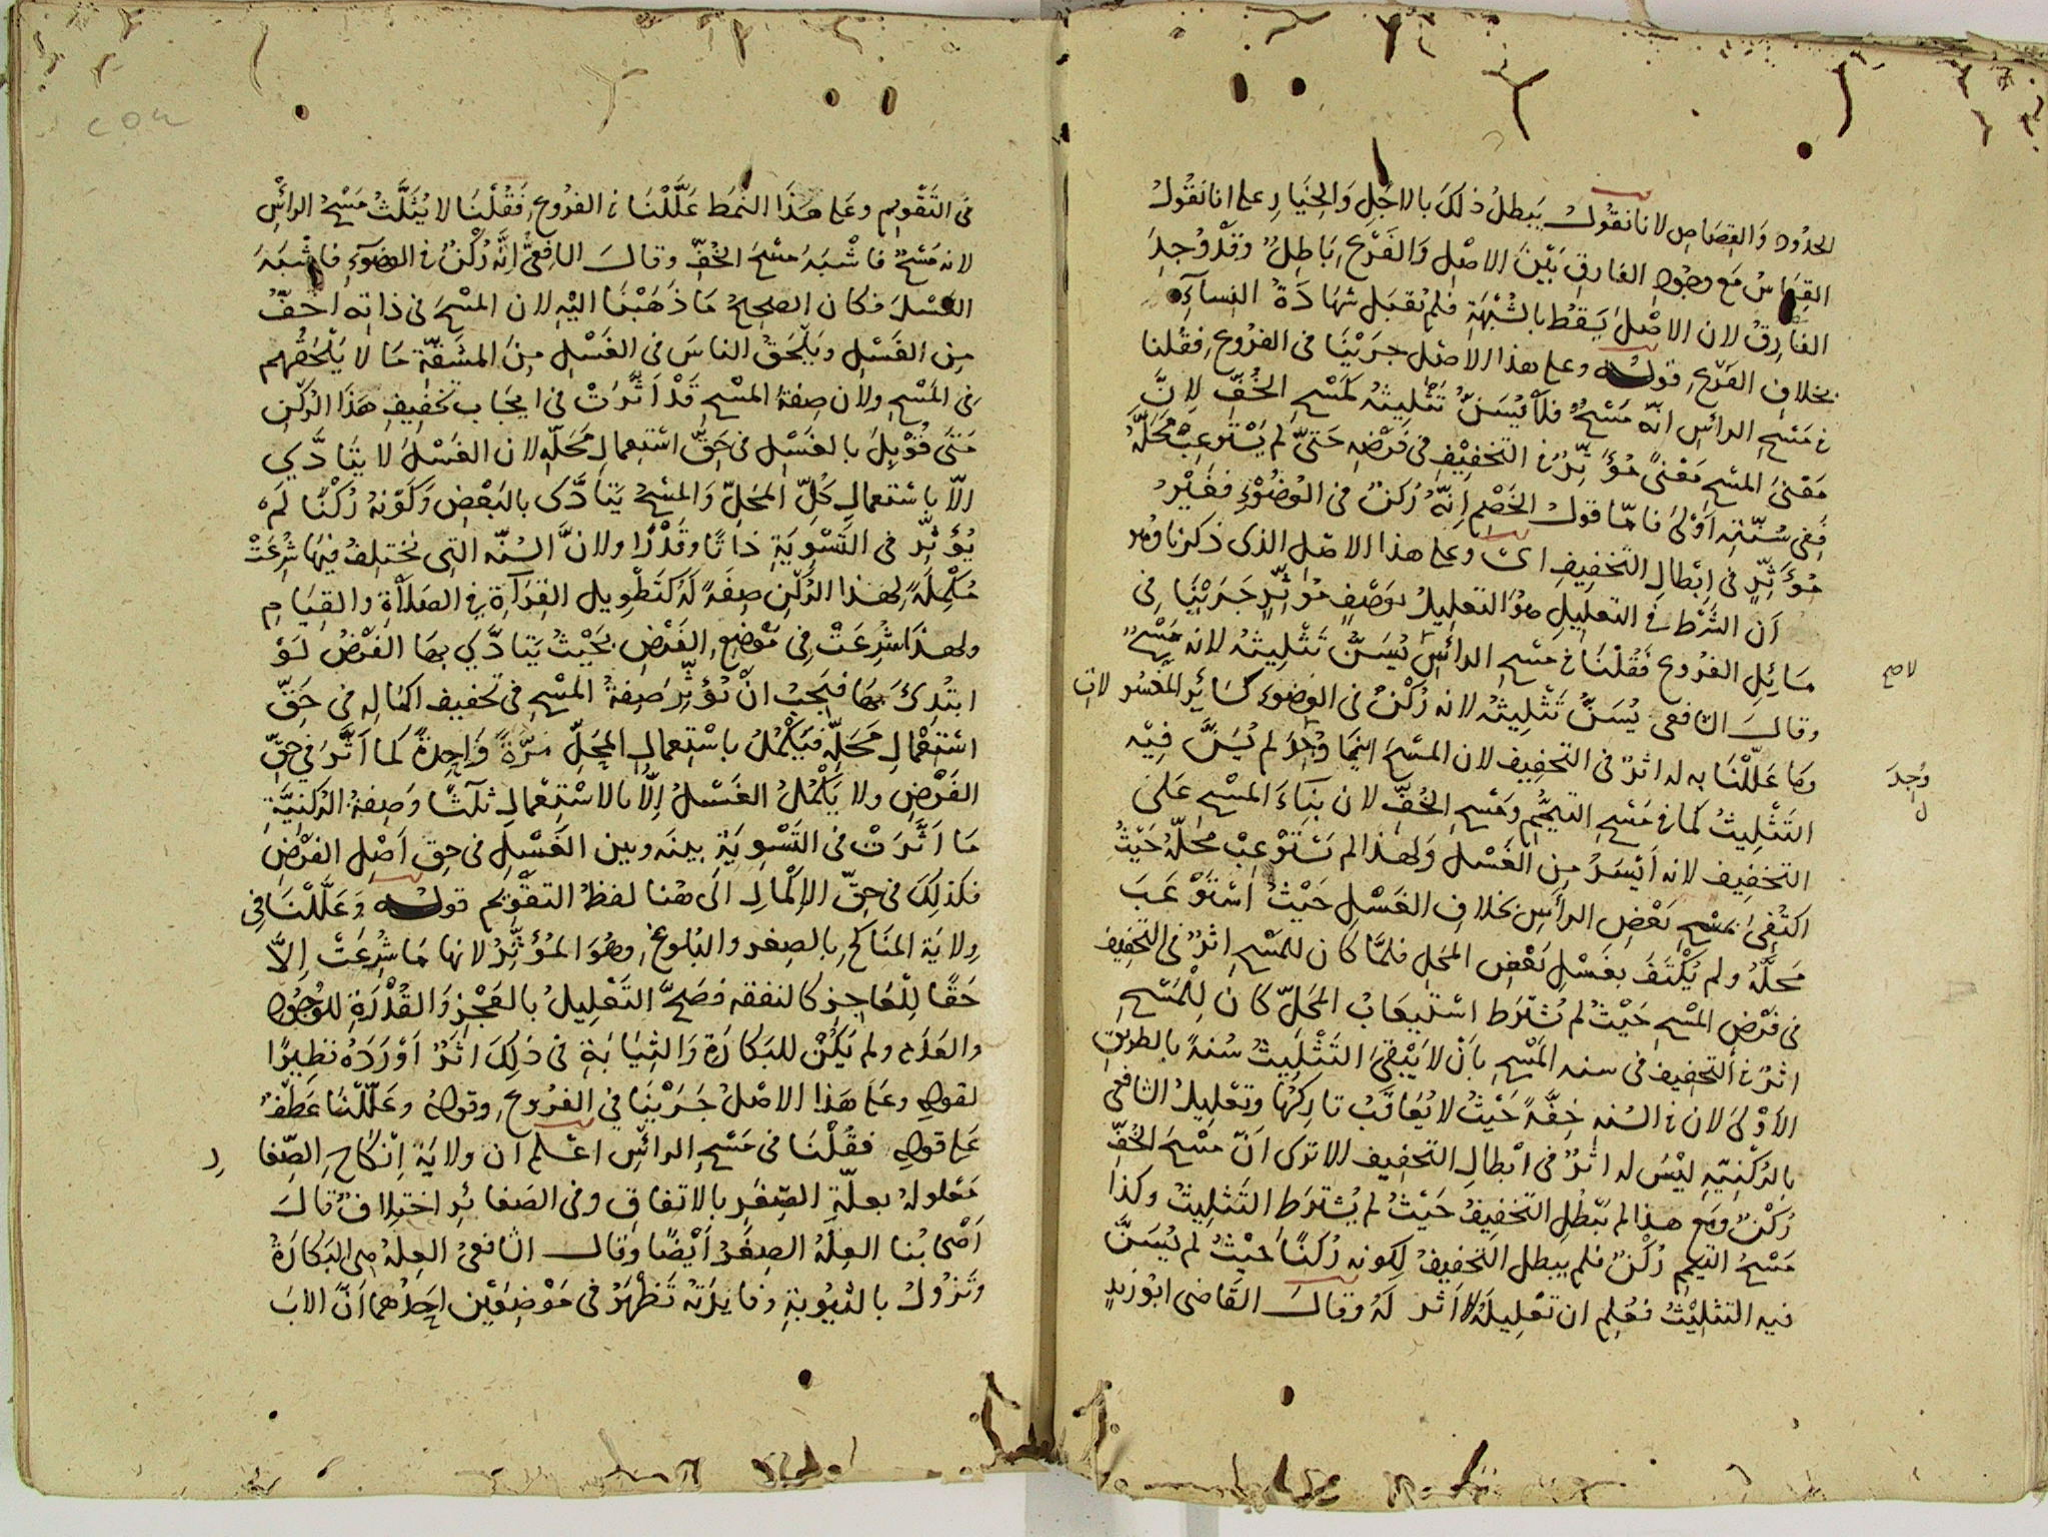 الحدود والقصاص لانا نقول يبطل ذلك بالاجل والخيار على انا نقول
القياس مع وجود الفارق بين الاصل والفرع باطل وقد وجد
الفارق لان الاصل يسقط بالشبهة فلم تقبل شهادة النساء
بخلاف الفرع قوله وعلى هذا الاصل جرينا فى الفروع فقلنا
فى مسح الرأس انه مسح فلا يسن تثليثه كمسح الخف لان
معنى المسح معنى مؤثر فى التخفيف فى فرضه حتى لم يستوعب محله
ففى سنته اولى فاما قول الخصم انه ركن فى الوضوء فغير
مؤثر فى ابطال التخفيف اى وعلى هذا الاصل الذى ذكرنا وهو
ان الشرط فى التعليل هو التعليل بوصف مؤثر جرينا فى
مسائل الفروع فقلنا فى مسح الرأس يسن تثليثه لانه مسح
لا صح
وقال الشافعى يسن تثليثه لانه ركن فى الوضوء كسائر المغسولات
وما عللنا به له اثر فى التخفيف لان المسح اينما وجد لم يسن فيه
وجد
التثليث كما فى مسح التيمم ومسح الخف لان بناء المسح على
التخفيف لانه ايسر من الغسل ولهذا لم يستوعب محله حيث
اكتفى بمسح بعض الرأس بخلاف الغسل حيث استوعب
محله ولم يكتف بغسل بعض المحل فلما كان للمسح اثر فى التخفيف
فى فرض المسح حيث لم يشترط استيعاب المحل كان للمسح
اثر فى التخفيف فى سنه المسح بان لا يبقى التثليث سنة بالطريق
الاولى لان فى السنه خفة حيث لا يعاقب تاركها وتعليل الشافعى
بالركنية ليس له اثر فى ابطال التخفيف الا ترى ان مسح الخف
ركن ومع هذا لم يبطل التخفيف حيث لم يشترط التثليث وكذا
مسح التيمم ركن فلم يبطل التخفيف لكونه ركنا حيث لم يسن
فيه التثليث فعلم ان تعليله لا اثر له وقال القاضى ابو زيد
فى التقويم وعلى هذا النمط عللنا فى الفروع فقلنا لا يثلث مسح الرأس
لانه مسح فاشبه مسح الخف وقال الشافعى انه ركن فى الوضوء فاشبه
الغسل فكان الصحيح ما ذهبنا اليه لان المسح فى ذاته اخف
من الغسل ويلحق الناس فى الغسل من المشقة ما لا يلحقهم
فى المسح ولان صفة المسح قد اثرت فى ايجاب تخفيف هذا الركن
متى قوبل بالغسل فى حق استعمال محله لان الغسل لا يتادى
الا باستعمال كل المحل والمسح يتادى بالبعض وكونه ركنا لم
يؤثر فى التسوية ذاتا وقدرا ولان السنه التى نختلف فيها شرعت
مكملة لهذا الركن صفة له كتطويل القراءة فى الصلاة والقيام
ولهذا شرعت فى موضع الفرض بحيث يتادى بها الفرض لو
ابتدئ بها فيجب ان تؤثر صفة المسح فى تخفيف اكماله فى حق
استعمال محله فيكمل باستعمال المحل مرة واحدة كما اثر فى حق
الفرض ولا يكمل الغسل الا بالاستعمال ثلاثا وصفة الركنية
ما اثرت فى التسوية بينه وبين الغسل فى حق اصل الفرض
فكذلك فى حق الاكمال الى هنا لفظ التقويم قوله وعللنا فى
ولاية المناكح بالصغر والبلوغ وهو المؤثر لانها ما شرعت الا
حقا للعاجز كالنفقه فصح التعليل بالعجز والقدرة للوجود
والعدم ولم يكن للبكارة والثيابة فى ذلك اثر اورده نظيرا
لقوله وعلى هذا الاصل جرينا فى الفروع وقوله وعللنا عطف
على قوله فقلنا فى مسح الرأس اعلم ان ولاية انكاح الصغا
ر
معلولة بعلة الصغر بالاتفاق وفى الصغائر اختلاف قال
اصحابنا العلة الصغر ايضا وقال الشافعى العلة هى البكارة
وتزول بالثيوبة وفايدته تظهر فى موضعين احدهما ان الاب